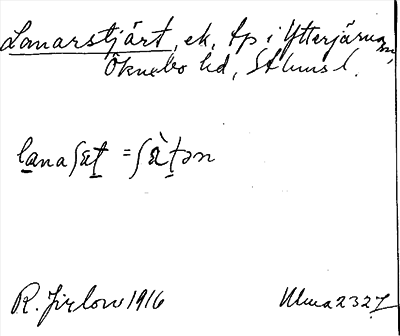 Lanarstjärt, ek, tp i Ytterjärna sn,
Öknebo hd, Sthms l.
lanaʃæt = ʃæ̀tən
R. Jirlow 1916 Ulma 2327